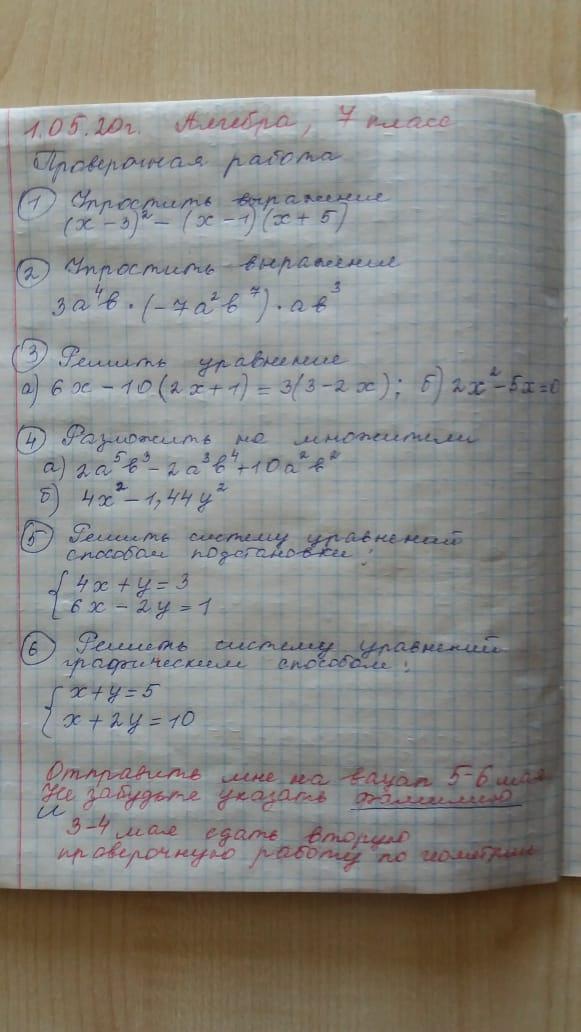 1.05.20г. Алгебра, 7 класс
Проверочная работа
1 Упростить выражение
(x-3)²-(x-1)(x+5)
2 Упростить выражение
3a⁴b·(-7a²b⁷)·ab³
3 Решить уравнение
а) 6x-10(2x+1)=3(3-2x); б) 2x²-5x=0
4 Разложить на множители
а) 2a⁵b³-2a³b⁴+10a²b²
б) 4x²-1,44y²
5 Решить систему уравнений
способом подстановки:
{4x+y=3
6x-2y=1
6 Решить систему уравнений
графическим способом:
{x+y=5
x+2y=10
Отправить мне на вацап 5-6 мая
Не забудьте указать фамилию
и
3-4 мая сдать вторую
проверочную работу по геометрии